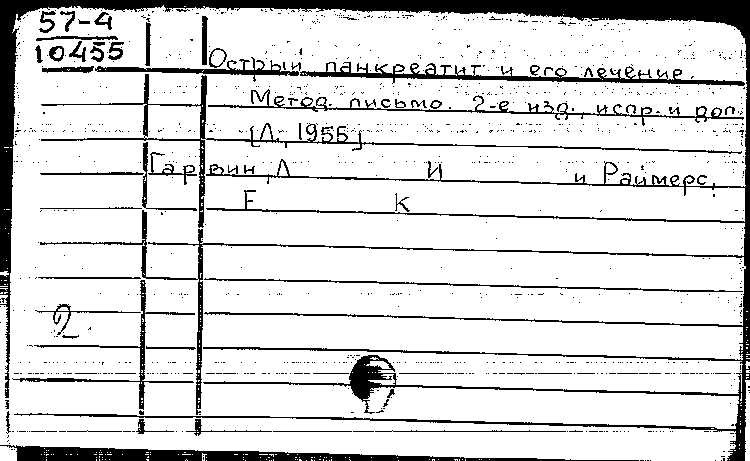 57-4
10455
Острый панкреатит и его лечение.
Метод. письмо. 2-е изд., испр. и доп.
[Л., 1955]
Гарвин, Л И и Раймерс,
F К
2.